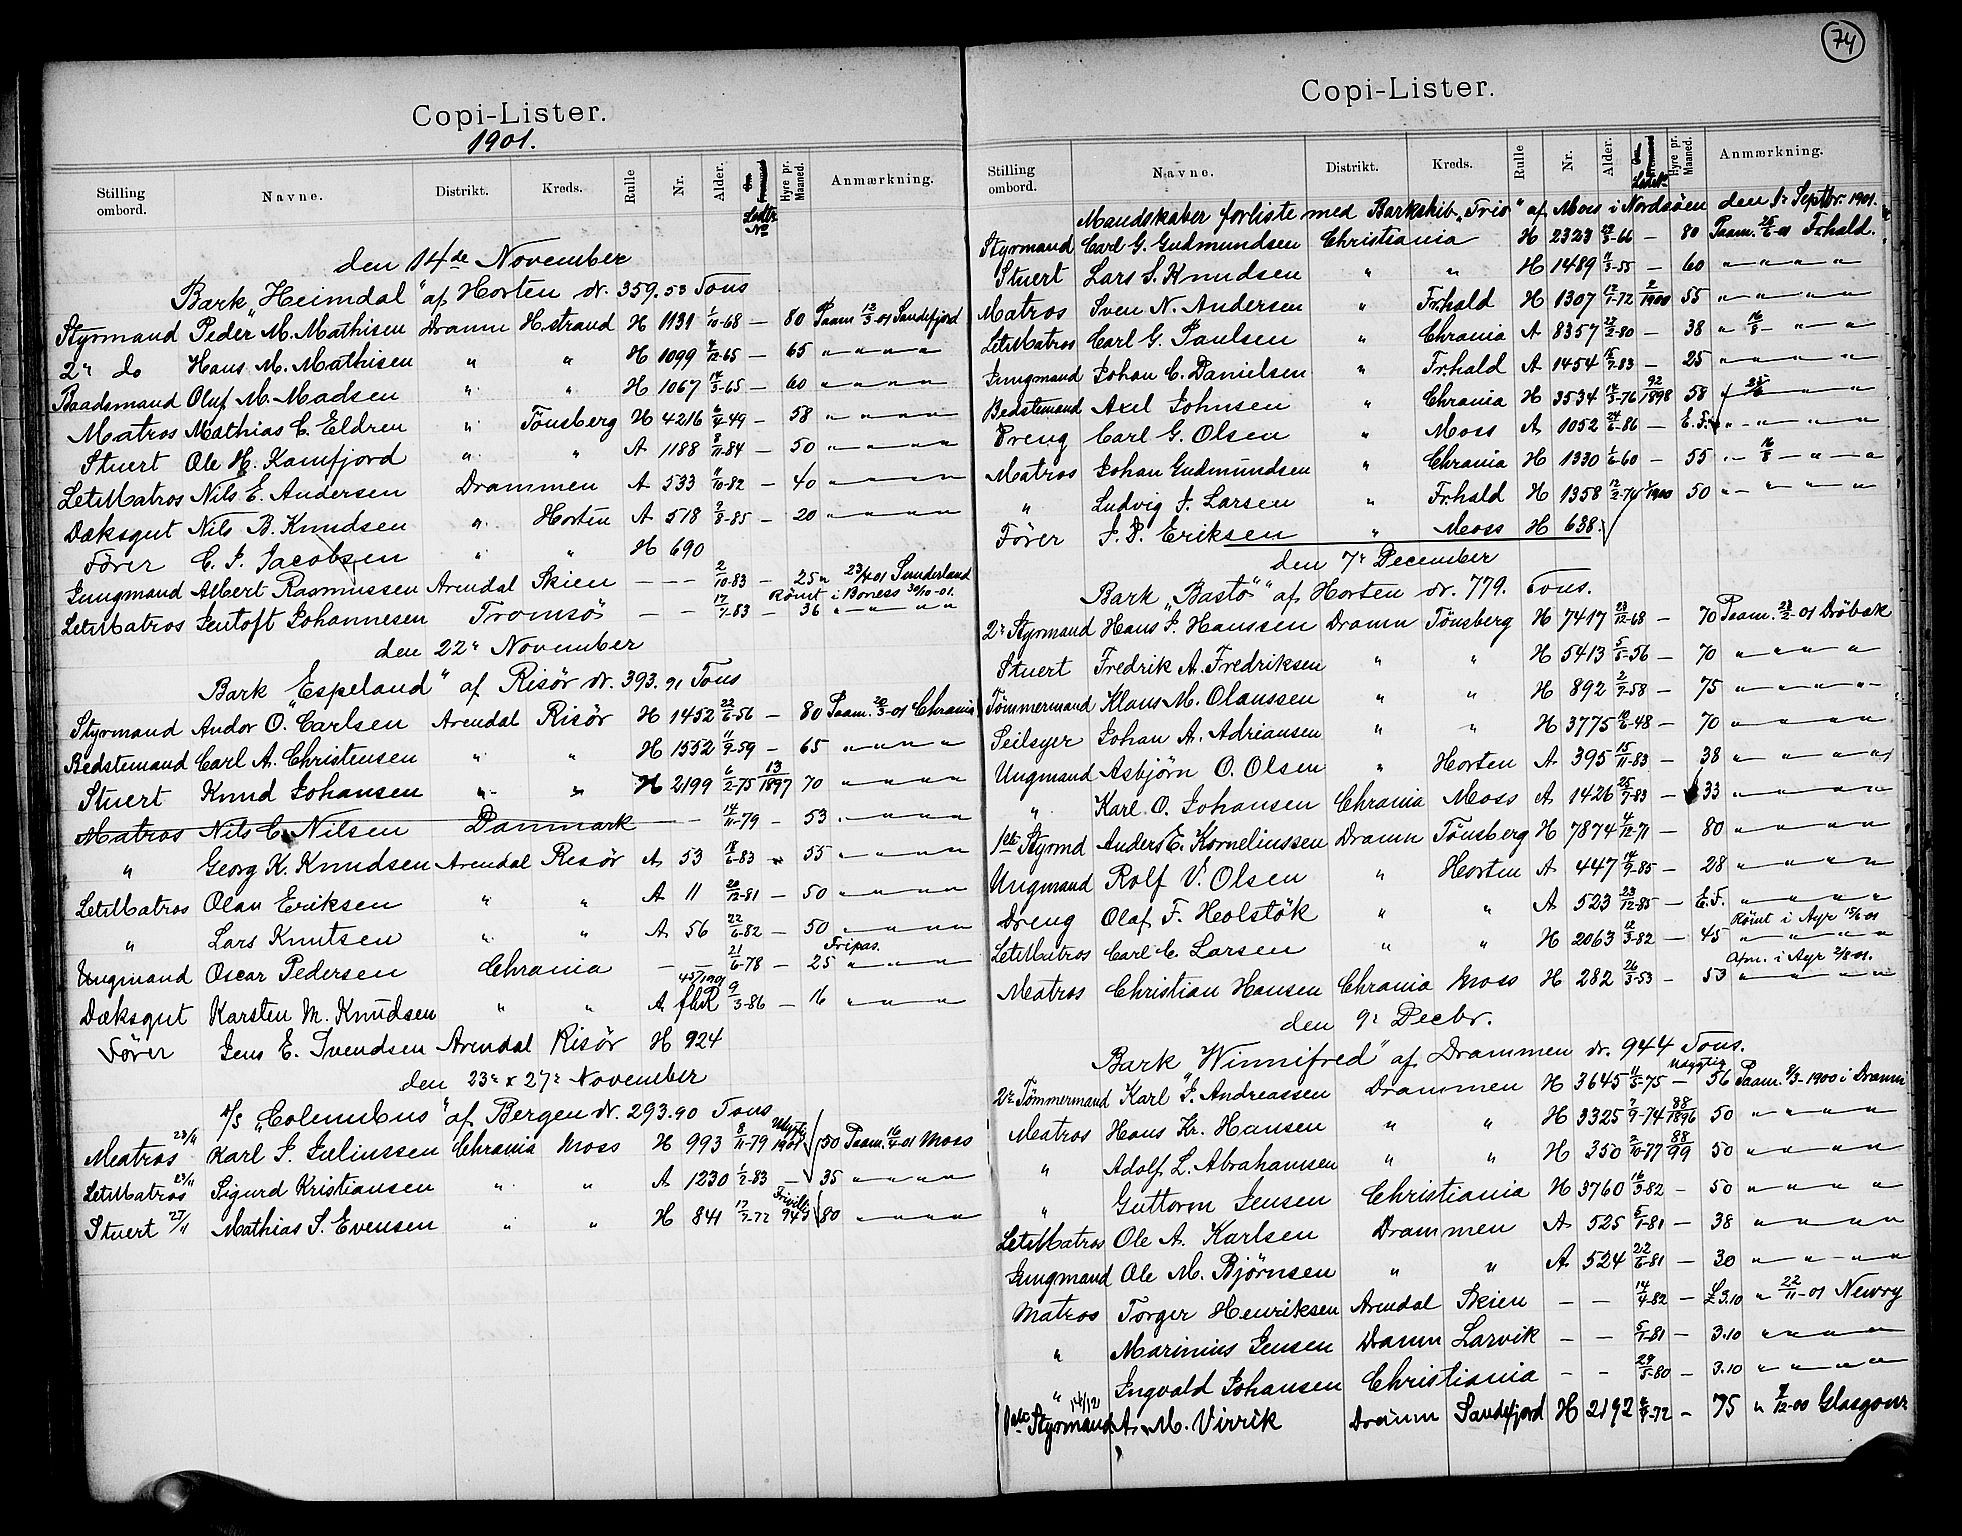 74
Copi-Lister.
1901.
Stilling ombord. Navne. Distrikt. Kreds. Rulle Nr. Alder. Hyre pr. Maaned. Anmærkning.
den 14de November
Bark „Heimdal" af Horten dr. 359.53 Tons
Styrmand Peder M. Mathisen Dramn H.strand H 1131 1/10-68 — 80 Paam. 12/3-01 Sandefjord
2n do Hans M. Mathisen " " H 1099 4/12-65 — 65 " " " "
Baadsmand Oluf M. Madsen " " H 1067 14/3-65 — 60 " " " "
Matros Mathias C. Eldren " Tönsberg H 4216 6/4-49 — 58 " " " "
Stuert Ole H. Kamfjord " " A 1188 8/11-84 — 50 " " " "
LetMatros Nils E. Andersen Drammen A 533 11/10-82 — 40 " " " "
Dæksgut Nils B. Knudsen " Horten A 518 2/8-85 — 20 " " " "
Förer C. J. Jacobsen " " H 690
Jungmand Albert Rasmussen Arendal Skien — — 2/10-83 — 25 " 23/4-01 Sunderland
Römt i Boness 30/10-01.
LetMatros Jentoft Johannesen Tromsö — — 17/7-83 — 36 " " " "
den 22n November
Bark „Espeland" af Risör dr. 393.91 Tons
Styrmand Andor O. Carlsen Arendal Risör H 1452 22/6-56 — 80 Paam. 20/3-01 Chrania
Bedstemand Carl A. Christensen " " H 1552 11/9-59 — 65 " " " "
Stuert Knud Johansen " " H 2199 6/2-75 13/1897 70 " " " "
Matros Nils C. Nilsen Danmark — — 14/11-79 — 53 " " " "
" Georg K. Knudsen Arendal Risör A 53 18/6-83 " 55 " " " "
LetMatros Olau Eriksen " " A 11 20/12-81 — 50 " " " "
" Lars Knutsen " " A 56 22/6-82 — 50 " " " "
Fripas.
Ungmand Oscar Pedersen Chrania — — 21/6-78 — 25 " " " "
Dæksgut Karsten M. Knudsen " " A 9/3-86 — 16 " " " "
Förer Jens E. Svendsen Arendal Risör H 924
den 23n & 27n November
S/S „Columbus" af Bergen dr. 293.90 Tons
Matros 23/11 Karl J. Juliussen Chrania Moss H 993 8/11-79 1901 50 Paam. 16/4-01 Moss
LetMatros 23/11 Sigurd Kristiansen " " A 1230 1/2-83 — 35 " " " "
Stuert 27/11 Mathias S. Evensen " " H 841 17/7-72 943 80 " " " "
Copi-Lister.
Stilling ombord. Navne. Distrikt. Kreds. Rulle Nr. Alder. Hyre pr. Maaned. Anmærkning.
Mandskaber forliste med Barkskib „Trio" af Moss i Nordsöen den Septbr. 1901.
Styrmand Carl G. Gudmundsen Christiania H 2323 — 80 Paam. 25/6-01 Frhald.
Stuert Lars S. Knudsen " " H 1489 11/3-55 — 60 " " " "
Matros Sven N. Andersen " Frhald H 1307 12/1-72 2/1900 55 " " " "
LetMatros Carl G. Paulsen " Chrania A 8357 27/2-80 — 38 " 16/8 " "
Jungmand Johan C. Danielsen " Frhald A 1454 — 25 " " " "
Bedstemand Axel Johnsen " Chrania H 3534 14/3-76 92/1898 58 " " "
Dreng Carl G. Olsen " Moss A 1052 24/6-86 — E.F. " " " "
Matros Johan Gudmundsen " Chrania H 1330 1/6-60 — 55 " 16/8 " "
" Ludvig J. Larsen " Frhald H 1358 12/2-74 1/1900 50 " " " "
Förer J. P. Eriksen " Moss H 638.
den 7n December
Bark „Bastö" af Horten dr. 779. Tons.
2n Styrmand Hans J. Hanssen Dramn Tönsberg H 7417 23/12-68 — 70 Paam. 23/2-01 Dröbak
Stuert Fredrik A. Fredriksen " " H 5413 5/5-56 — 70 " " " "
Tömmermand Klaus M. Olaussen " " H 892 2/7-58 — 75 " " " "
Seilsyer Johan A. Adriansen " " H 3775 10/6-48 — 70 " " " "
Ungmand Asbjörn O. Olsen " Horten A 395 15/11-83 — 38 " " " "
" Karl O. Johansen Chrania Moss A 1426 25/7-83 — 33 " " " "
1ste Styrmd Anders E. Korneliussen Dramn Tönsberg H 7874 4/12-71 — 80 " " " "
Ungmand Rolf V. Olsen " Horten A 447 14/9-85 — 28 " " " "
Dreng Olaf F. Holstök " " A 523 23/12-85 — E.F. " " " "
Römt i Ayr 15/6-01
LetMatros Carl C. Larsen " " H 2063 12/3-82 — 45 " " " "
Afm. i Ayr 21/8-01.
Matros Christian Hansen Chrania Moss H 282 26/3-53 — 53 " " " "
den 9n Decbr.
Bark „Winnifred" af Drammen dr. 944 Tons.
2n Tömmermand Karl J. Andreassen Drammen H 3645 11/5-75 — 56 Paam. 9/3-1900 i Dramn
Matros Hans Kr. Hansen " " H 3325 7/9-74 88/1896 50 " " " "
" Adolf L. Abrahamsen " " H 350 2/10-77 88/99 50 " " " "
" Guttorm Jensen Christiania H 3760 16/3-82 — 50 " " " "
LetMatros Ole A. Karlsen Drammen A 525 5/1-81 — 38 " " " "
Jungmand Ole M. Björnsen " " A 524 22/6-81 — 30 " " " "
Matros Torger Henriksen Arendal Skien — — 14/4-82 — £3.10 " 22/11-01 Newry
" Marinius Jensen Dramn Larvik — — 5/1-81 — 3.10 " " " "
" Ingvald Johansen Christiania — — 29/5-80 — 3.10 " " " "
14/12
1ste Styrmand A. M. Virrik Dramn Sandefjord H 2192 — 75 " 7/12-00 Glasgow